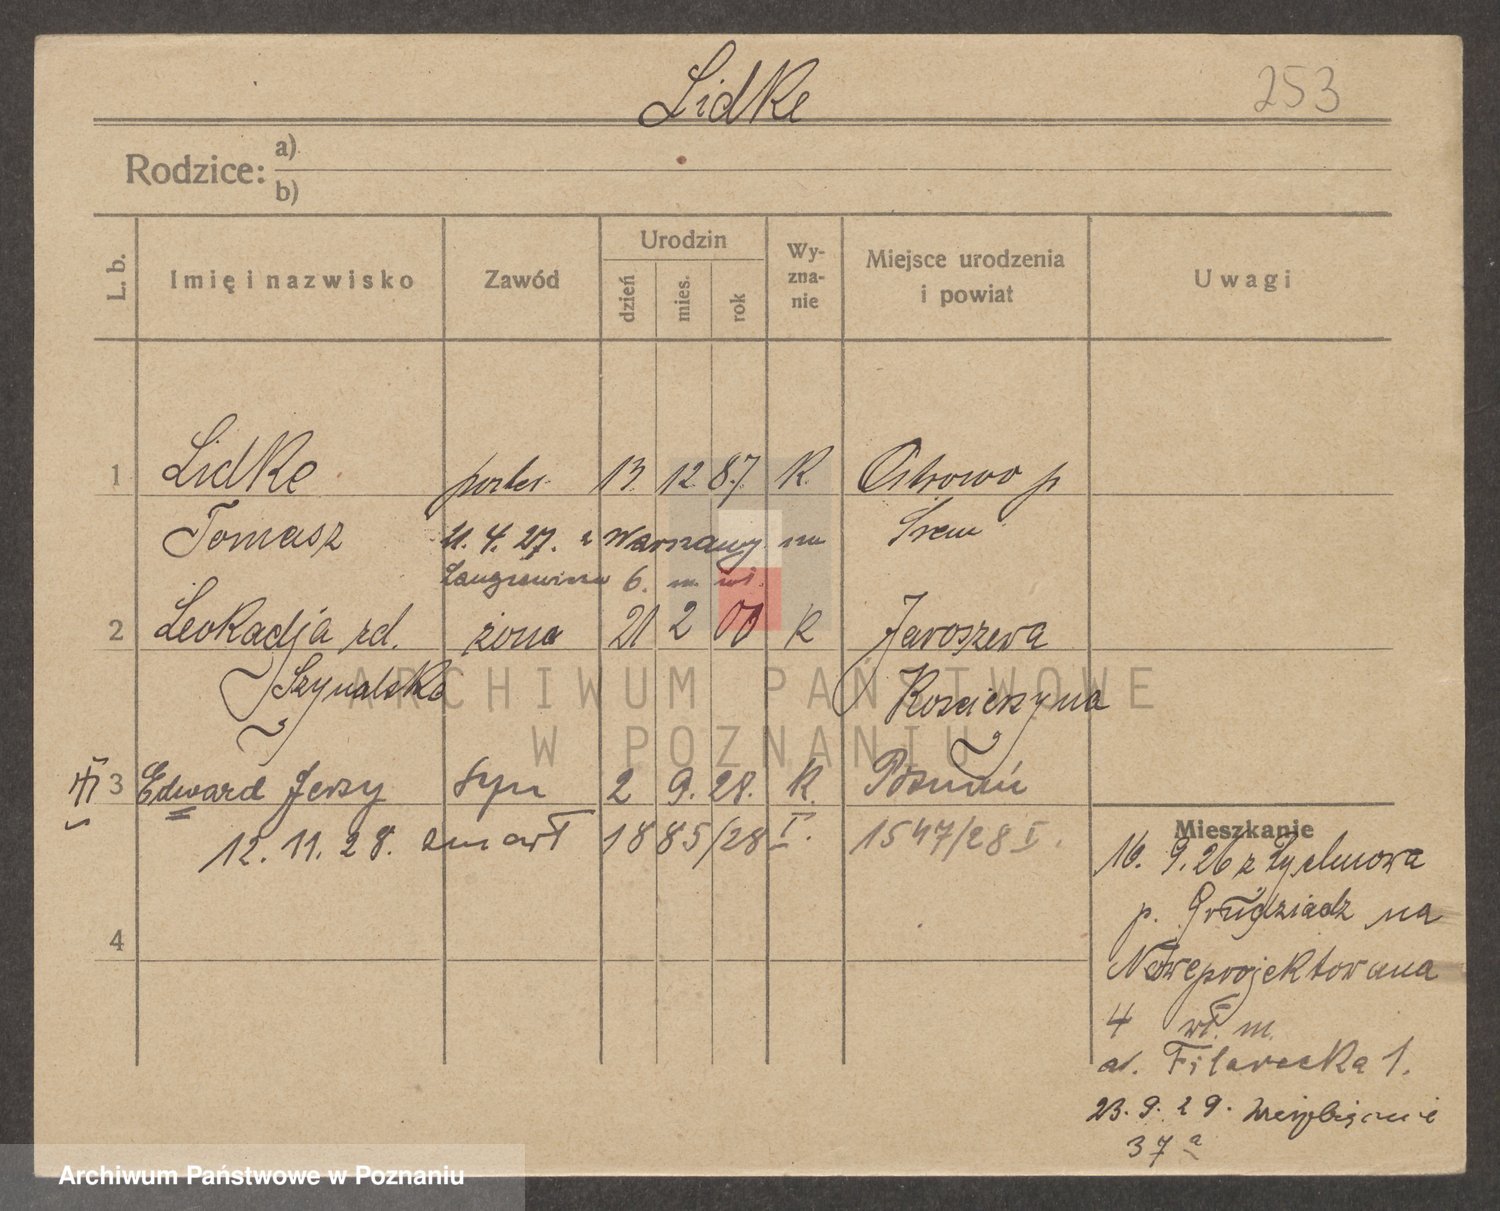 Lidke
253
Rodzice: a)
b)
L. b. Imię i nazwisko Zawód Urodzin dzień mies. rok Wy-zna-nie Miejsce urodzenia i powiat Uwagi
1 Lidke 13. 12. 87. K. Ostrowo p
Tomasz 21. 4. 27. z Warszawy na Śrem
6. m. wł.
2 Leokadja rd. żona 21 2 00 K Jaroszewa
Szynalska Kościerzyna
ARCHIWUM PAŃSTWOWE
W POZNANIU
3 Edward Jerzy syn 2 9. 28. K. Poznań
12. 11. 28. zmarł 1885/28 I. 1547/28 I.
4
Mieszkanie
16. 9. 26 z
p. Grudziądz na
Noweprojektowana
4 wł. m.
al. Filarecka 1.
23. 9. 29.
37 a
Archiwum Państwowe w Poznaniu